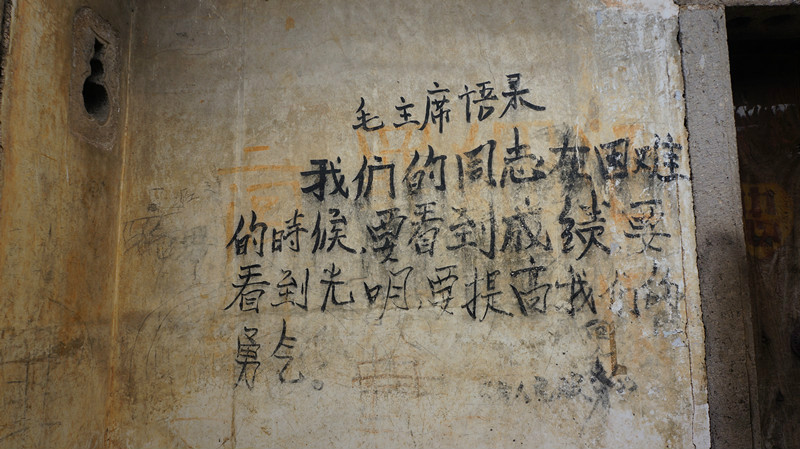 毛主席语录
我们的同志在困难
的時候,要看到成绩要
看到光明,要提高我们的
勇气。